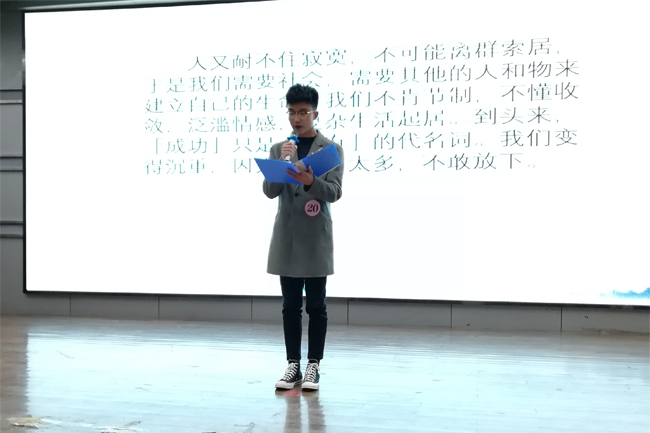 人又耐不住寂寞，不可能离群索居，
于是我们需要社会，需要其他的人和物来
建立自己的生 我们不肯节制，不懂收
敛，泛滥情感， 杂生活起居。到头来，
「成功」只是 」的代名词。我们变
得沉重，因 太多，不敢放下。
20